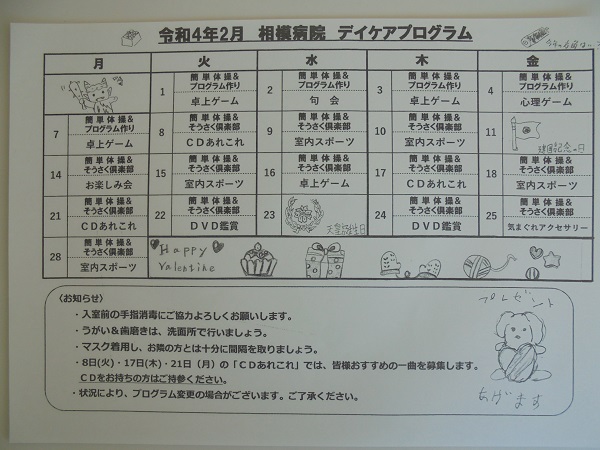 令和4年2月 相模病院 デイケアプログラム
月 火 水 木 金
1 簡単体操&プログラム作り 卓上ゲーム
2 簡単体操&プログラム作り 句会
3 簡単体操&プログラム作り 卓上ゲーム
4 簡単体操&プログラム作り 心理ゲーム
7 簡単体操&プログラム作り 卓上ゲーム
8 簡単体操&そうさく倶楽部 CDあれこれ
9 簡単体操&そうさく倶楽部 室内スポーツ
10 簡単体操&そうさく倶楽部 室内スポーツ
11 建国記念の日
14 簡単体操&そうさく倶楽部 お楽しみ会
15 簡単体操&そうさく倶楽部 室内スポーツ
16 簡単体操&そうさく倶楽部 卓上ゲーム
17 簡単体操&そうさく倶楽部 CDあれこれ
18 簡単体操&そうさく倶楽部 室内スポーツ
21 簡単体操&そうさく倶楽部 CDあれこれ
22 簡単体操&そうさく倶楽部 DVD鑑賞
23 天皇誕生日
24 簡単体操&そうさく倶楽部 DVD鑑賞
25 簡単体操&そうさく倶楽部 気まぐれアクセサリー
28 簡単体操&そうさく倶楽部 室内スポーツ
Happy
Valentine
〈お知らせ〉
・入室前の手指消毒にご協力よろしくお願いします。
・うがい&歯磨きは、洗面所で行いましょう。
・マスク着用し、お隣の方とは十分に間隔を取りましょう。
・8日(火)・17日(木)・21日(月)の「CDあれこれ」では、皆様おすすめの一曲を募集します。
CDをお持ちの方はご持参ください。
・状況により、プログラム変更の場合がございます。ご了承ください。
プレゼント
あげます